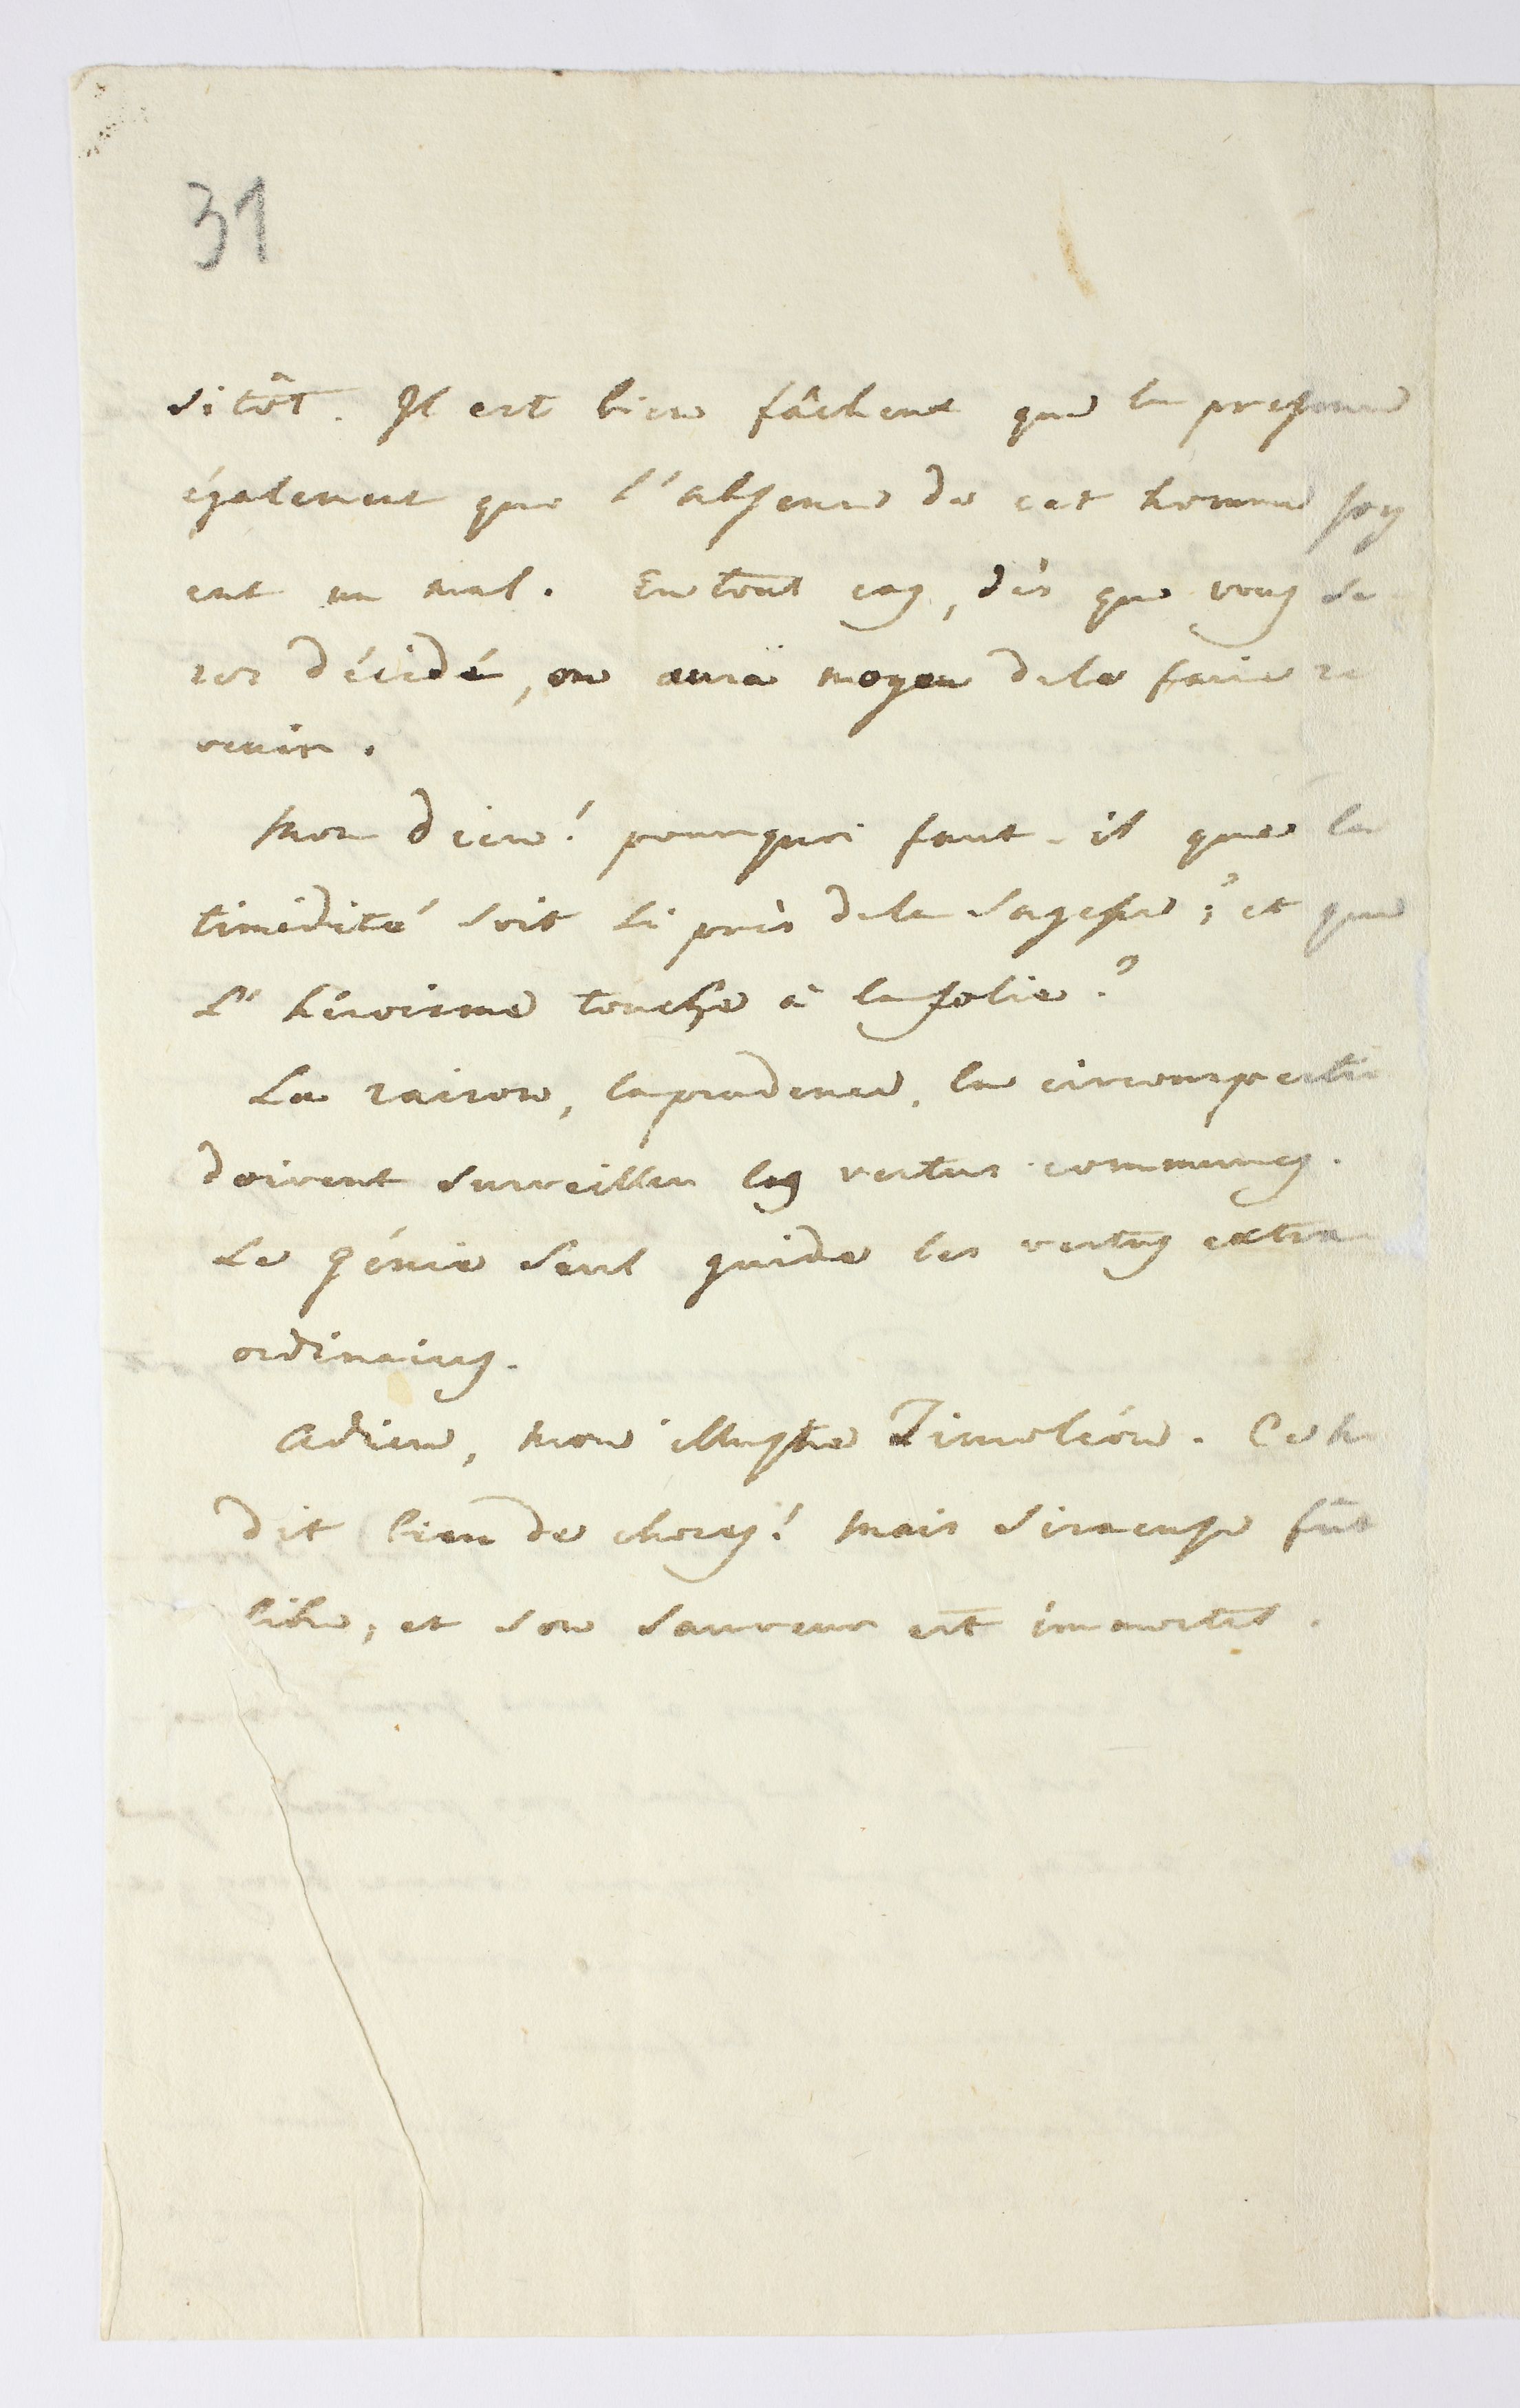 31
sitôt. Il est bien fâcheux que la presence
également que l'absence de cet homme soy
ent un mal. En tout cas, dès que vous se
rez décidé, on aura moyen de le faire re
venir.
Mon dieu! pourquoi faut-il que la
timidité soit si près de la sagesse; et que
l'héroisme touche à la folie?
La raison, la prudence, la circonspectio
doivent surveiller les vertus communes.
Le génie seul guide les vertus extra
ordinaires.
adieu, mon illustre Timoléon. Ce
dit bien de choses! mais Siracuse fût
libre; et son sauveur est immortel.